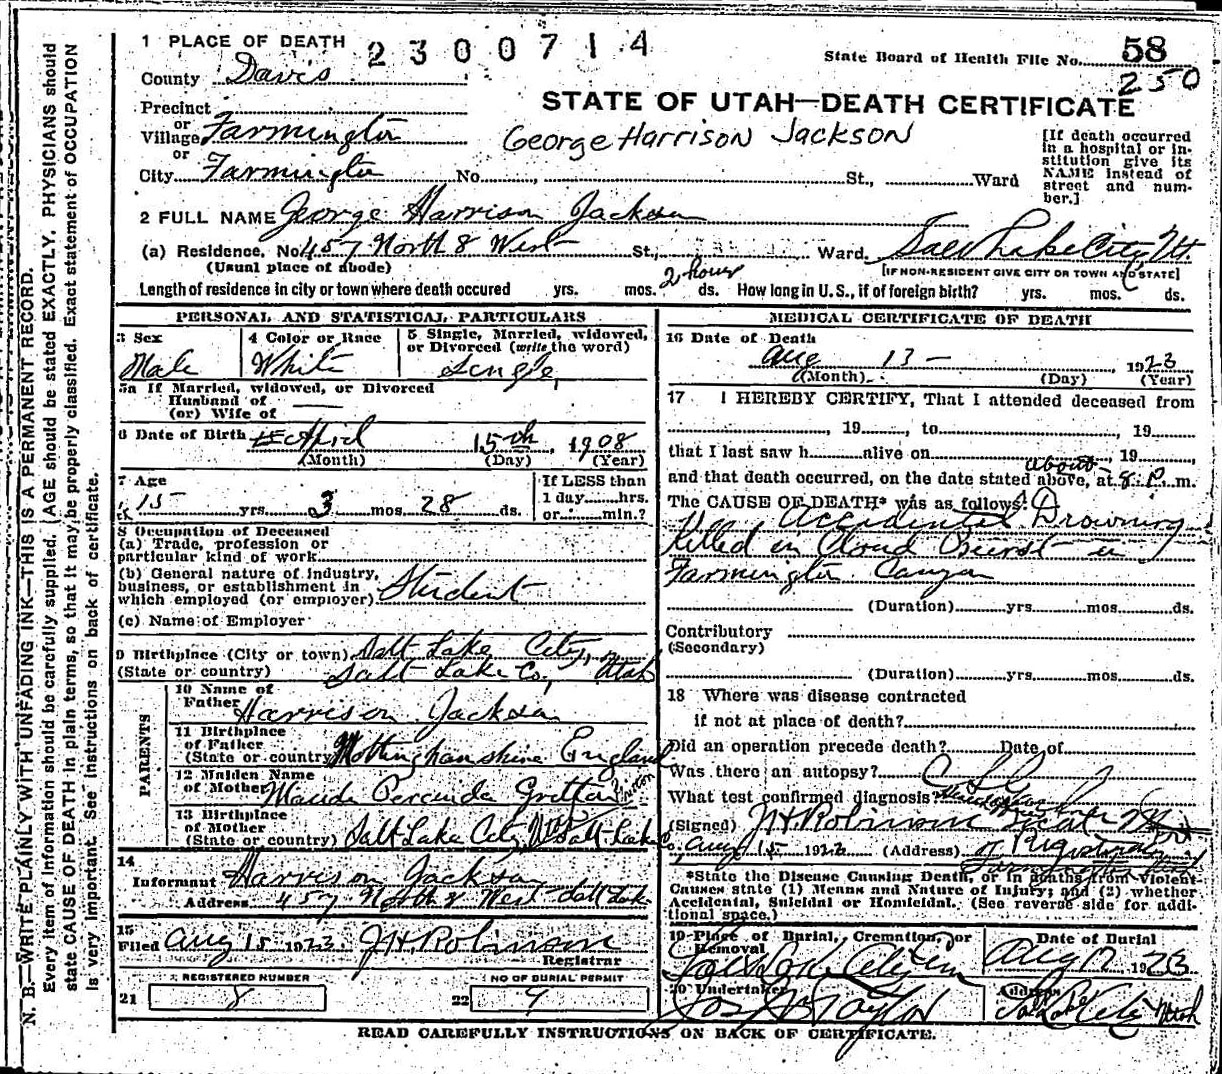 1 PLACE OF DEATH 2300714
State Board of Health File No. 58
County Davis
250
STATE OF UTAH—DEATH CERTIFICATE
Precinct
or
Village Farmington
George Harrison Jackson
or
City Farmington No. , St., Ward
[If death occurred
in a hospital or in-
stitution give its
NAME instead of
street and num-
ber.]
2 FULL NAME George Harrison Jackson
(a) Residence. No. 457 North 8 West St., Ward. Salt Lake City Ut.
(Usual place of abode) [IF NON-RESIDENT GIVE CITY OR TOWN AND STATE]
Length of residence in city or town where death occured yrs. mos. 2 hours ds. How long in U.S., if of foreign birth? yrs. mos. ds.
PERSONAL AND STATISTICAL PARTICULARS
3 Sex
Male
4 Color or Race
White
5 Single, Married, widowed,
or Divorced (write the word)
Single
5a If Married, widowed, or Divorced
Husband of
(or) Wife of
6 Date of Birth April 15th, 1908
(Month) (Day) (Year)
7 Age
15 yrs. 3 mos. 28 ds.
If LESS than
1 day hrs.
or min.?
8 Occupation of Deceased
(a) Trade, profession or
particular kind of work
(b) General nature of industry,
business, or establishment in
which employed (or employer) Student
(c) Name of Employer
9 Birthplace (City or town) Salt Lake City,
(State or country) Salt Lake Co., Utah
PARENTS
10 Name of
Father Harrison Jackson
11 Birthplace
of Father
(State or country) Nottinghamshire England
12 Maiden Name
of Mother Maude
13 Birthplace
of Mother
(State or country) Salt Lake City, Ut Salt Lake Co.
14
Informant Harrison Jackson
Address 457 North 8 West Salt Lake
15
Filed Aug 15 1923 J H Robinson
Registrar
REGISTERED NUMBER
21 8
NO OF BURIAL PERMIT
22 9
MEDICAL CERTIFICATE OF DEATH
16 Date of Death
Aug 13 - , 1923
(Month) (Day) (Year)
17 I HEREBY CERTIFY, That I attended deceased from
, 19 , to , 19
that I last saw h alive on , 19
about
and that death occurred, on the date stated above, at 8 P. m.
The CAUSE OF DEATH* was as follows:
Accidental Drowning
Killed in Cloud Burst in
Farmington Canyon
(Duration) yrs. mos. ds.
Contributory
(Secondary)
(Duration) yrs. mos. ds.
18 Where was disease contracted
if not at place of death?
Did an operation precede death? Date of
Was there an autopsy?
What test confirmed diagnosis?
(Signed) J H Robinson
Aug 15 1923 (Address)
*State the Disease Causing Death, or in deaths from Violent
Causes state (1) Means and Nature of Injury; and (2) whether
Accidental, Suicidal or Homicidal. (See reverse side for addi-
tional space.)
19 Place of Burial, Cremation, or
Removal
Salt Lake City Cem
Date of Burial
Aug 17 1923
20 Undertaker
Jos Wm Taylor
Address
Salt Lake City Utah
READ CAREFULLY INSTRUCTIONS ON BACK OF CERTIFICATE.
N. B.—WRITE PLAINLY WITH UNFADING INK—THIS IS A PERMANENT RECORD.
Every item of information should be carefully supplied. AGE should be stated EXACTLY. PHYSICIANS should
state CAUSE OF DEATH in plain terms, so that it may be properly classified. Exact statement of OCCUPATION
is very important. See instructions on back of certificate.